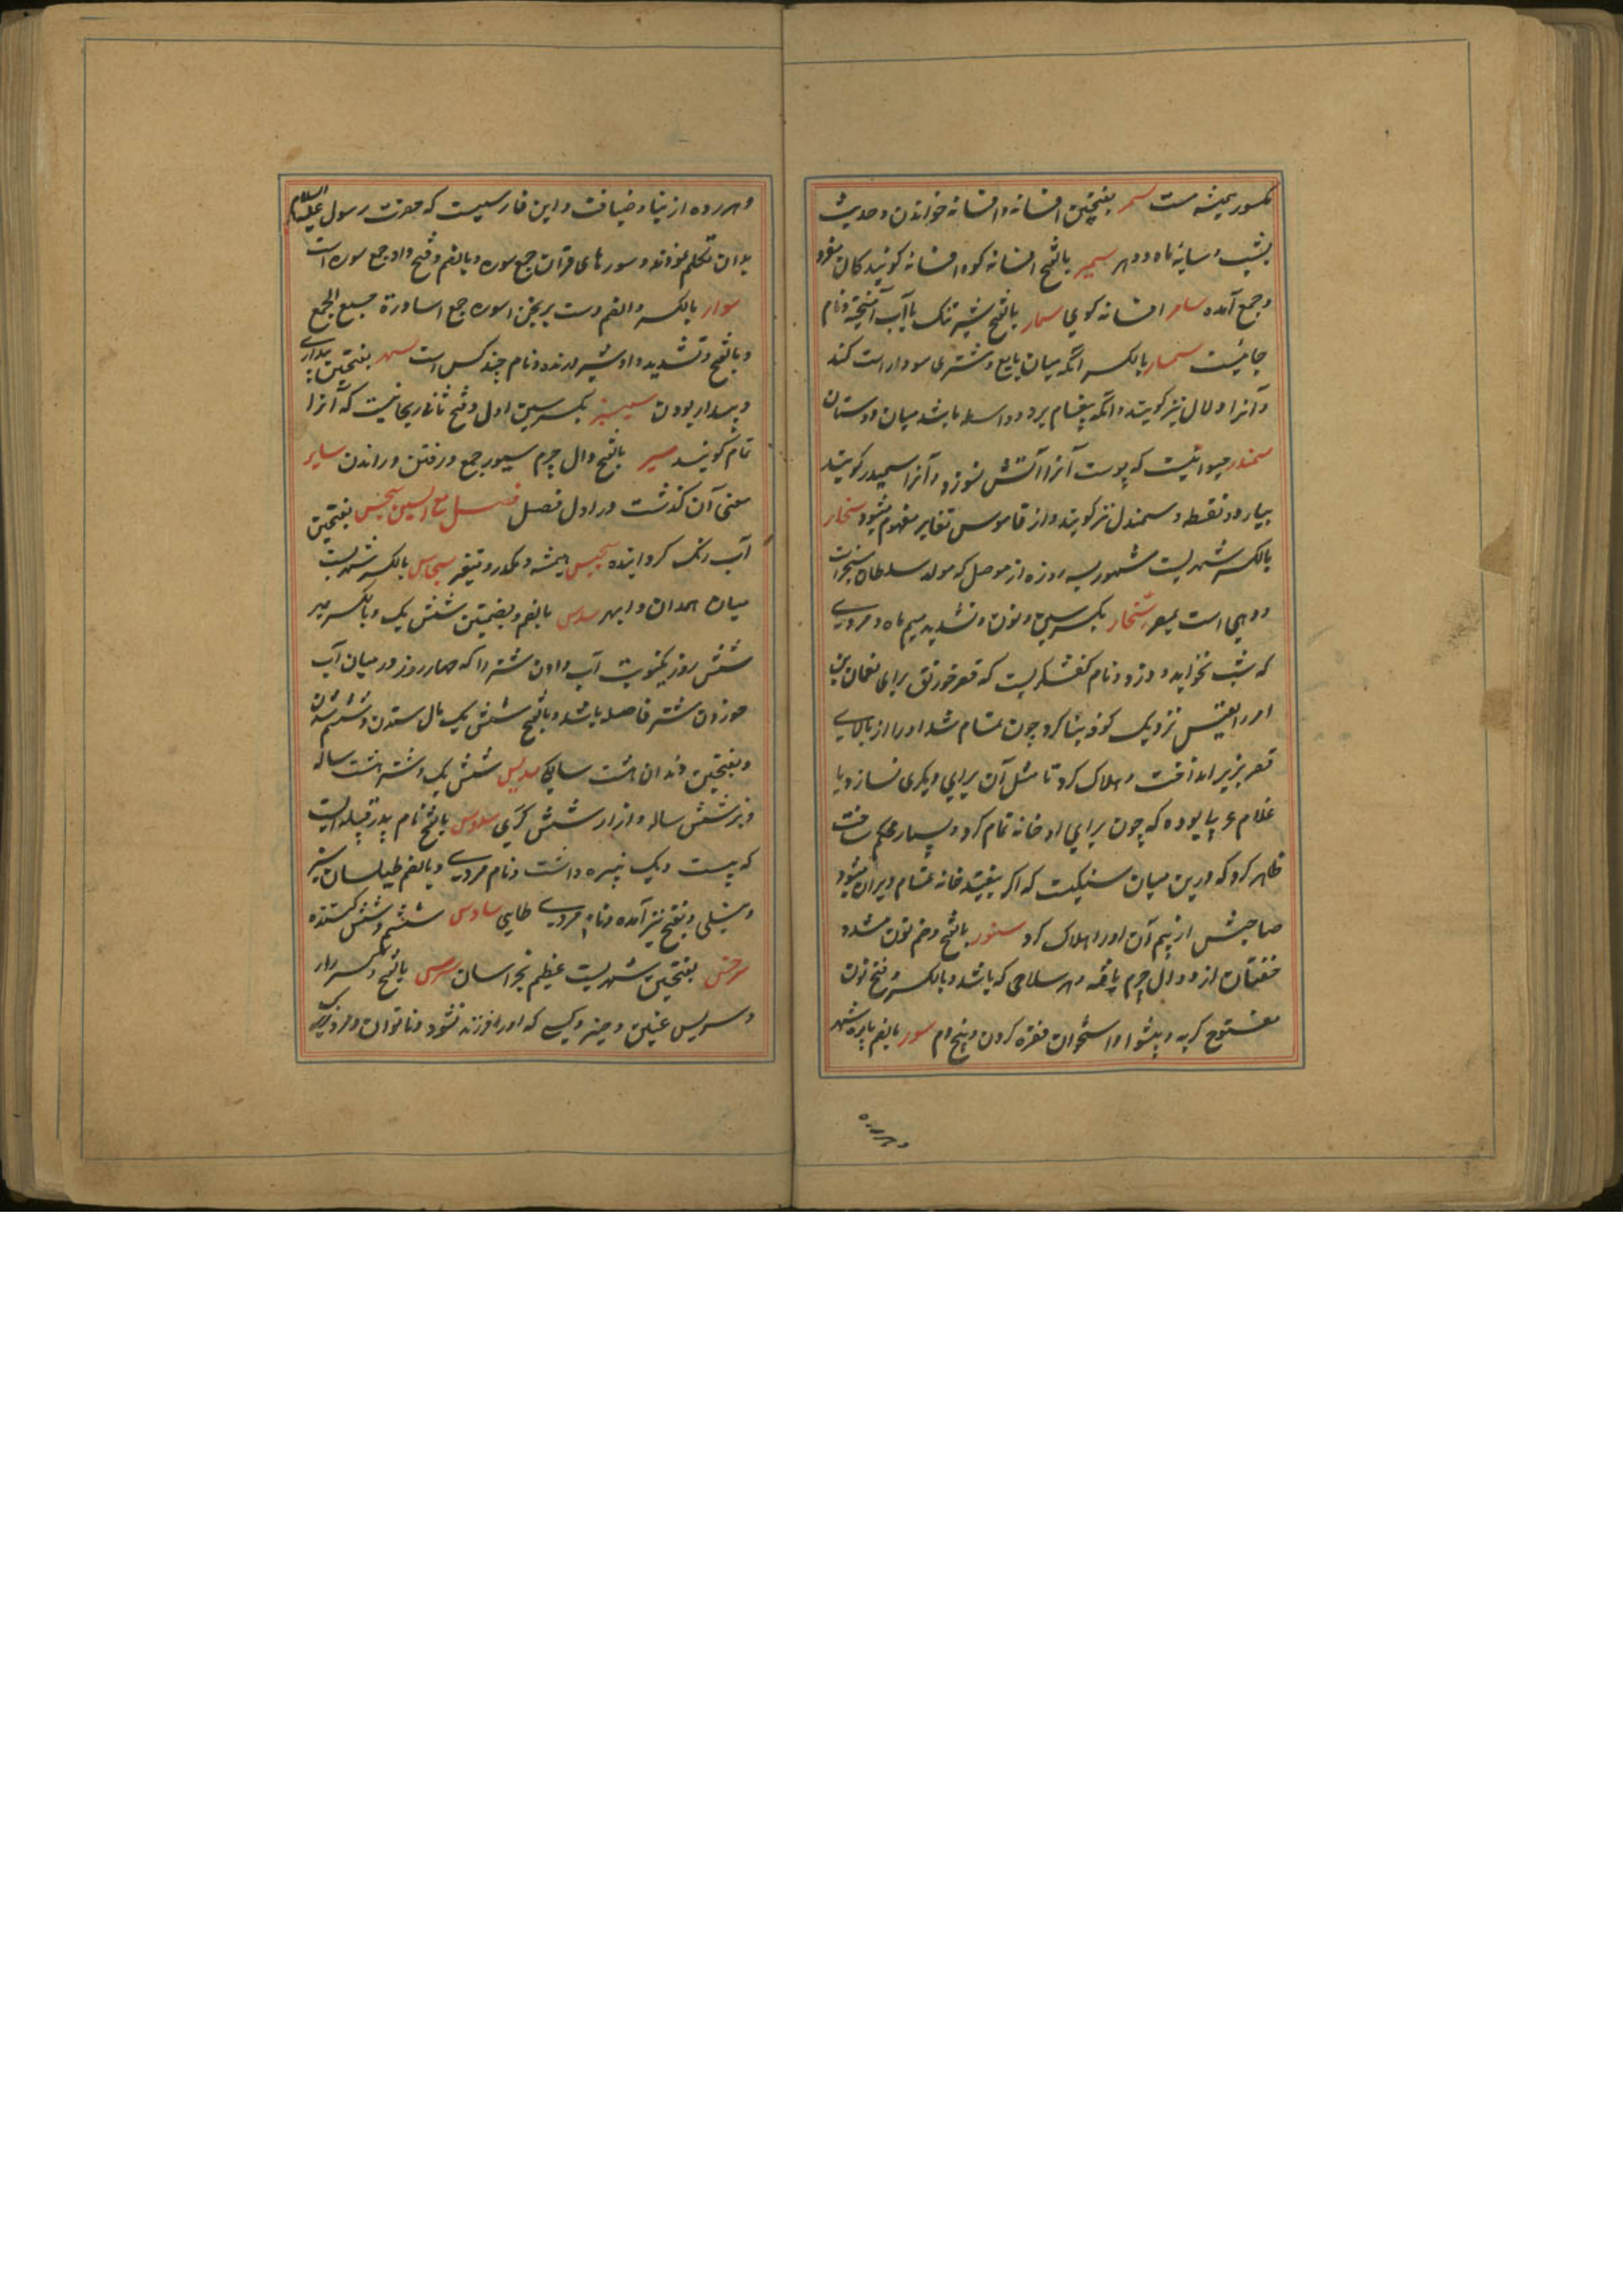 مکسور همیشه مست سمر بفتحتین افسانه و افسانه خواندن و حدیث
بشب و سایهٔ ماه و دهر سمیر بالفتح افسانه کو و افسانه کویندکان مفرد
و جمع آمده سامر افسانه کوی سمار بالفتح شیر تنک باآب آمیخته و نام
جائیست سمسار بالکسر انکه میان بایع و مشتری سودا راست کند
و آنرا دلال نیز کویند و انکه پیغام برد و واسطه باشد میان دوستان
سمندر حیوانیست که پوست آنرا آتش نسوزد و آنرا سمیدر کویند
بیا و دو نقطه و سمندل نیز کویند و از قاموس تغایر مفهوم میشود سنجار
بالکسر شهریست مشهور بسه روزه از موصل که مولد سلطان سنجرانست
و دهی است بمصر سنمار بکسر سین و نون و تشدید میم ماه و مردی
که شب نخوابد و دزد و نام کفشکریست که قصر خورنق برای نعمان بن
امرء القیس نزدیک کوفه بنا کرد چون تمام شد او را از بالای
قصر بزیر انداخت و هلاک کرد تا مثل آن برای دیکری نسازد یا
غلام بوده که چون برای او خانه تمام کرد و بسیار محکم ساخت
ظاهر کرد که درین میان سنکیست که اکر بیفتد خانه تمام ویران میشود
صاحبش از بیم آن او را هلاک کرد سنور بالفتح و ضم نون مشدد
خفتان از دوال چرم بافته و هر سلاحی که باشد و بالکسر و فتح نون
مفتوح کربه و پیشوا و استخوان فقره کردن و بیخ دم سور بالضم باره شهر
و هر رده
و هر رده از بنا و ضیافت و این فارسیست که حضرت رسول علیه السلام
بدان تکلم نمودند و سورهای قران جمع سوره و بالضم و فتح واو جمع سوره است
سوار بالکسر والضم دست برنجن اسوره جمع اساورة جمع الجمع
و بالفتح و تشدید واو شیر درنده و نام چند کس است سهر بفتحتین بیداری
و بیدار بودن سیسنبر بکسر سین اول و فتح ثانی ریحانیست که آنرا
نمام کویند سیر بالفتح دوال چرم سیور جمع و رفتن و راندن سایر
معنی آن کذشت در اول فصل فصل مع السین سجس بفتحتین
آب رنک کردانیده سجیس همیشه و مکدر و متغیر سجاس بالکسر شهریست
میان همدان و ابهر سدس بالضم و بضمتین شش یک و بالکسر میر
شش روز یکنوبت آب دادن شتر را که چهار روز در میان آب
خوردن شتر فاصله باشد و بالفتح شش یک مال ستدن و ششم شدن
و بفتحتین دندان هشت سالکی سدیس شش یک و شتر هشت ساله
و بز شش ساله و ازار شش کزی سدوس بالفتح نام پدر قبیله ایست
که بیست و یک پسر داشت و نام مردی و بالضم طیلسان سبز
و نیلی و بفتح نیز آمده و نام مردی طایی سادس ششم و شش کننده
سرخس بفتحتین شهریست عظیم بخراسان سرس بالفتح و کسر را
و سریس عنین و حیز و کسی که او را فرزند نشود و ناتوان و مرد زیرک